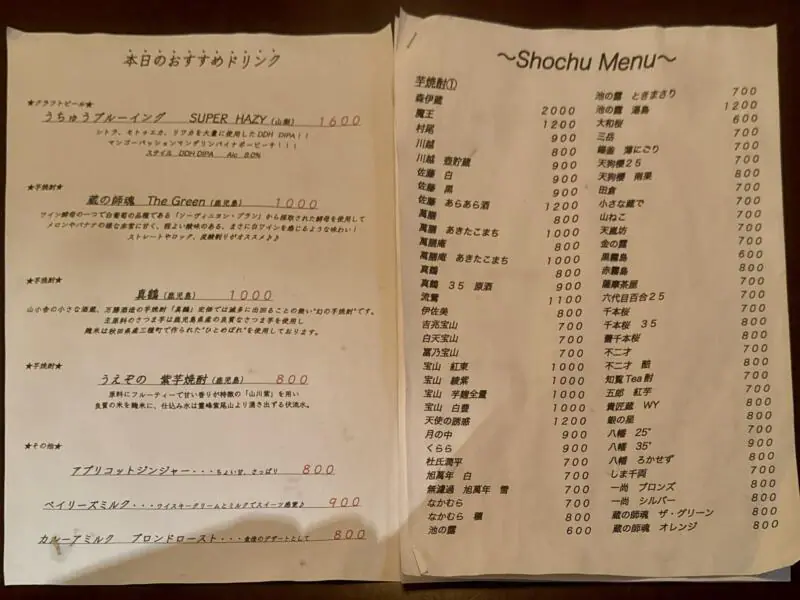 本日のおすすめドリンク
★クラフトビール★
うちゅうブルーイング SUPER HAZY (山梨) 1600
シトラ、モトゥエカ、リワカを大量に使用したDDH DIPA!!
マンゴーパッションマンダリンパイナポーピーチ!!!
スタイル DDH DIPA Alc 8.0%
★芋焼酎★
蔵の師魂 The Green (鹿児島) 1000
ワイン酵母の一つで白葡萄の品種である「ソーヴィニヨン・ブラン」から採取された酵母を使用して
メロンやバナナの様な非常に甘く、程よい酸味のある、まさに白ワインを感じるような味わい!
ストレートやロック、炭酸割りがオススメ♪♪
★芋焼酎★
真鶴 (鹿児島) 1000
山小舎の小さな酒蔵、万膳酒造の芋焼酎「真鶴」定価では滅多に出回ることの無い"幻の芋焼酎"です。
主原料のさつま芋は鹿児島県産の良質なさつま芋を使用し
麹米は秋田県産三種町で作られた"ひとめぼれ"を使用しております。
★芋焼酎★
うえぞの 紫芋焼酎 (鹿児島) 800
原料にフルーティーで甘い香りが特徴の「山川紫」を用い
良質の米を麹米に、仕込み水は霊峰紫尾山より湧き出ずる伏流水。
★その他★
アプリコットジンジャー・・・ちょい甘、さっぱり 800
ベイリーズミルク・・・ウイスキークリームとミルクでスイーツ感覚♪ 900
カルーアミルク ブロンドロースト・・・食後のデザートとして 800
～Shochu Menu～
芋焼酎①
森伊蔵 2000
魔王 1200
村尾 900
川越 800
川越 壺貯蔵 900
佐藤 白 900
佐藤 黒 900
佐藤 あらあら酒 1200
萬膳 800
萬膳 あきたこまち 1000
萬膳庵 800
萬膳庵 あきたこまち 1000
真鶴 800
真鶴 35 原酒 900
流鶯 1100
伊佐美 800
吉兆宝山 700
白天宝山 700
冨乃宝山 700
宝山 紅東 1000
宝山 綾紫 1000
宝山 芋麹全量 1000
宝山 白豊 1000
天使の誘惑 1200
月の中 900
くらら 900
杜氏潤平 700
旭萬年 白 700
無濾過 旭萬年 700
なかむら 700
なかむら 穣 800
池の露 600
池の露 ときまさり 700
池の露 湯島 1200
大和桜 600
三岳 700
薄にごり 700
天狗櫻25 700
天狗櫻 南果 800
田倉 700
小さな蔵で 700
山ねこ 700
天嵐坊 700
金の露 700
黒霧島 600
赤霧島 800
薩摩茶屋 700
六代目百合25 700
千本桜 700
千本桜 35 800
蕾千本桜 700
不二才 700
不二才 醅 800
知覧Tea酎 700
五郎 紅芋 700
貴匠蔵 WY 800
銀の星 800
八幡 25° 800
八幡 35° 900
八幡 ろかせず 800
しま千両 700
一尚 ブロンズ 800
一尚 シルバー 800
蔵の師魂 ザ・グリーン 800
蔵の師魂 オレンジ 800